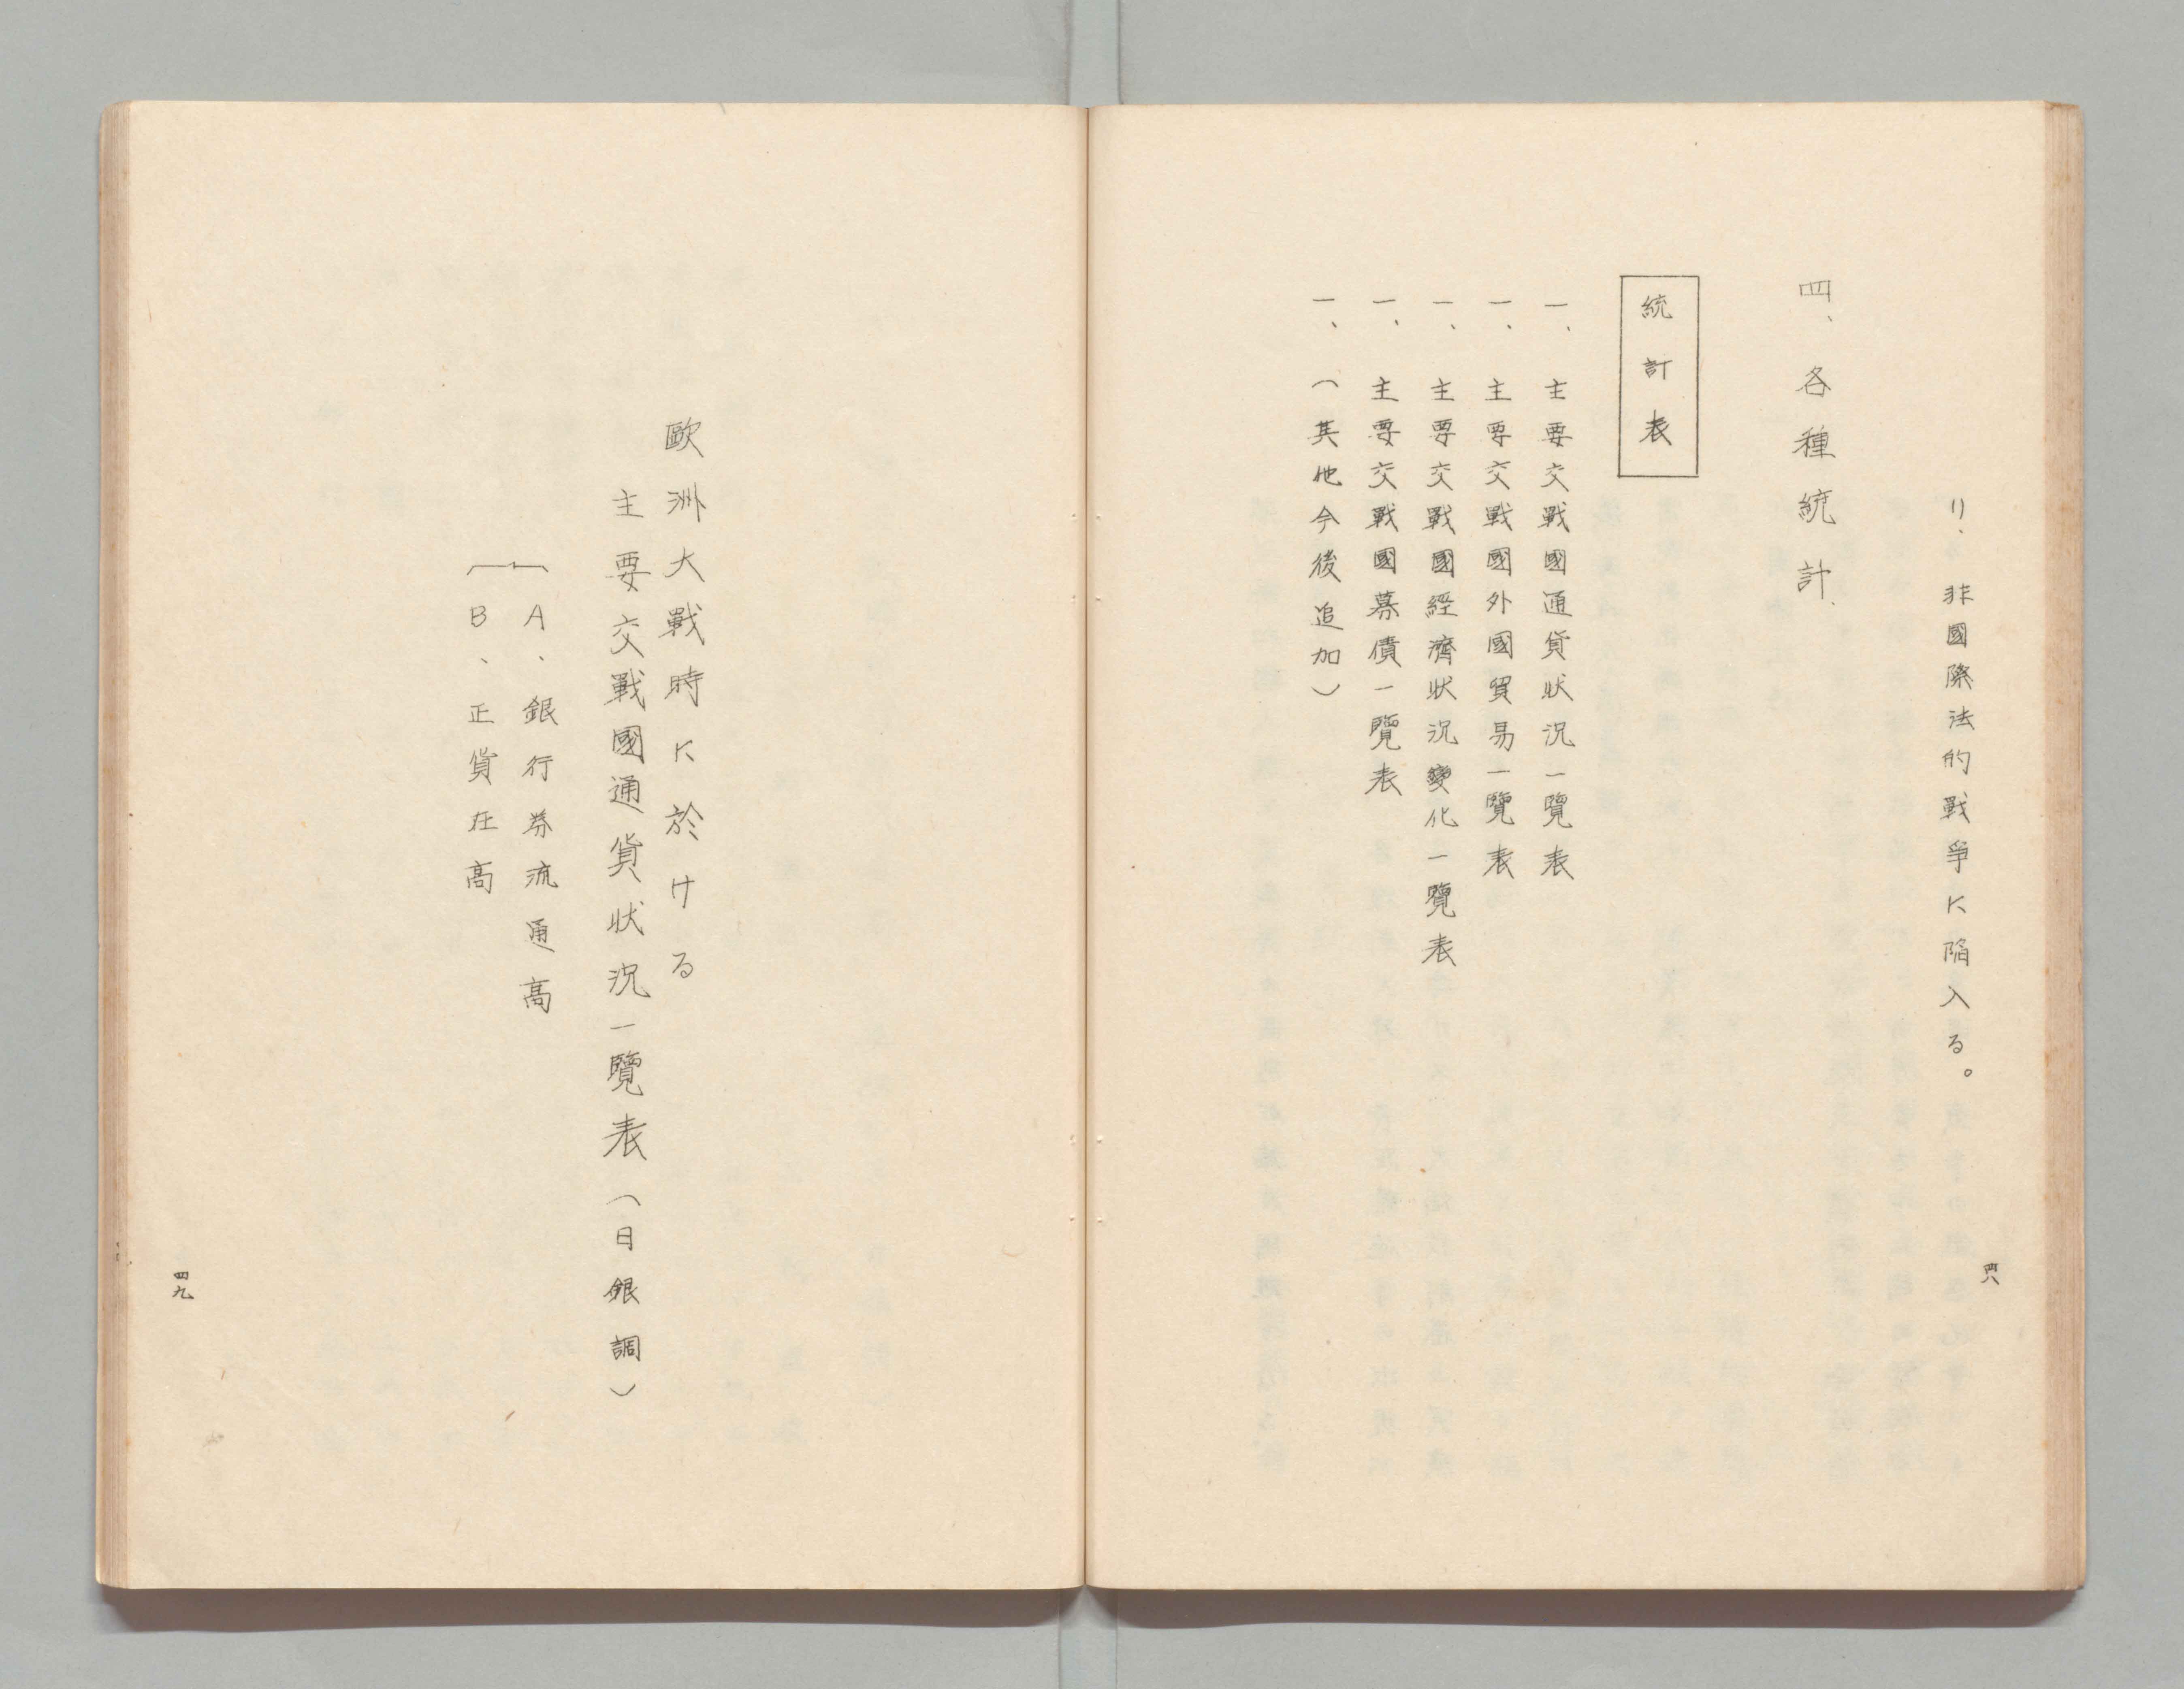 リ、非國際法的戰爭に陷入る。
四、各種統計
統計表
一、主要交戰國通貨狀況一覽表
一、主要交戰國外國貿易一覽表
一、主要交戰國經濟狀況變化一覽表
一、主要交戰國募債一覽表
一、(其他今後追加)
四八
歐洲大戰時に於ける
主要交戰國通貨狀況一覽表(日銀調)
A、銀行券流通高
B、正貨在高
四九